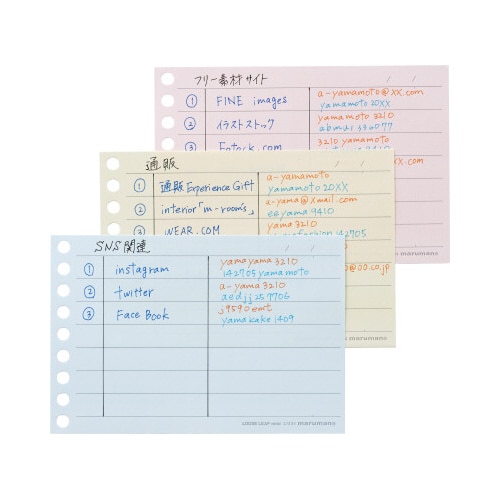 フリー素材サイト / /
① FINE images a-yamamoto@XX.com
yamamoto 20XX
② イラストストック yamamoto 3210
③ Fotock.com 3210 yamamoto
通販 / /
① 通販 Experience Gift a-yamamoto
yamamoto 20XX
② interior「m-room's」 a-yama@xmail.com
eeyama 9410
③ WEAR.COM yama 3210
@OO.co.jp
SNS関連 / /
① instagram yamayama3210
142705yamamoto
② twitter a-yama 3210
aedjj257706
③ Face Book j9590emt
yamakake1409
LOOSE LEAF marumano